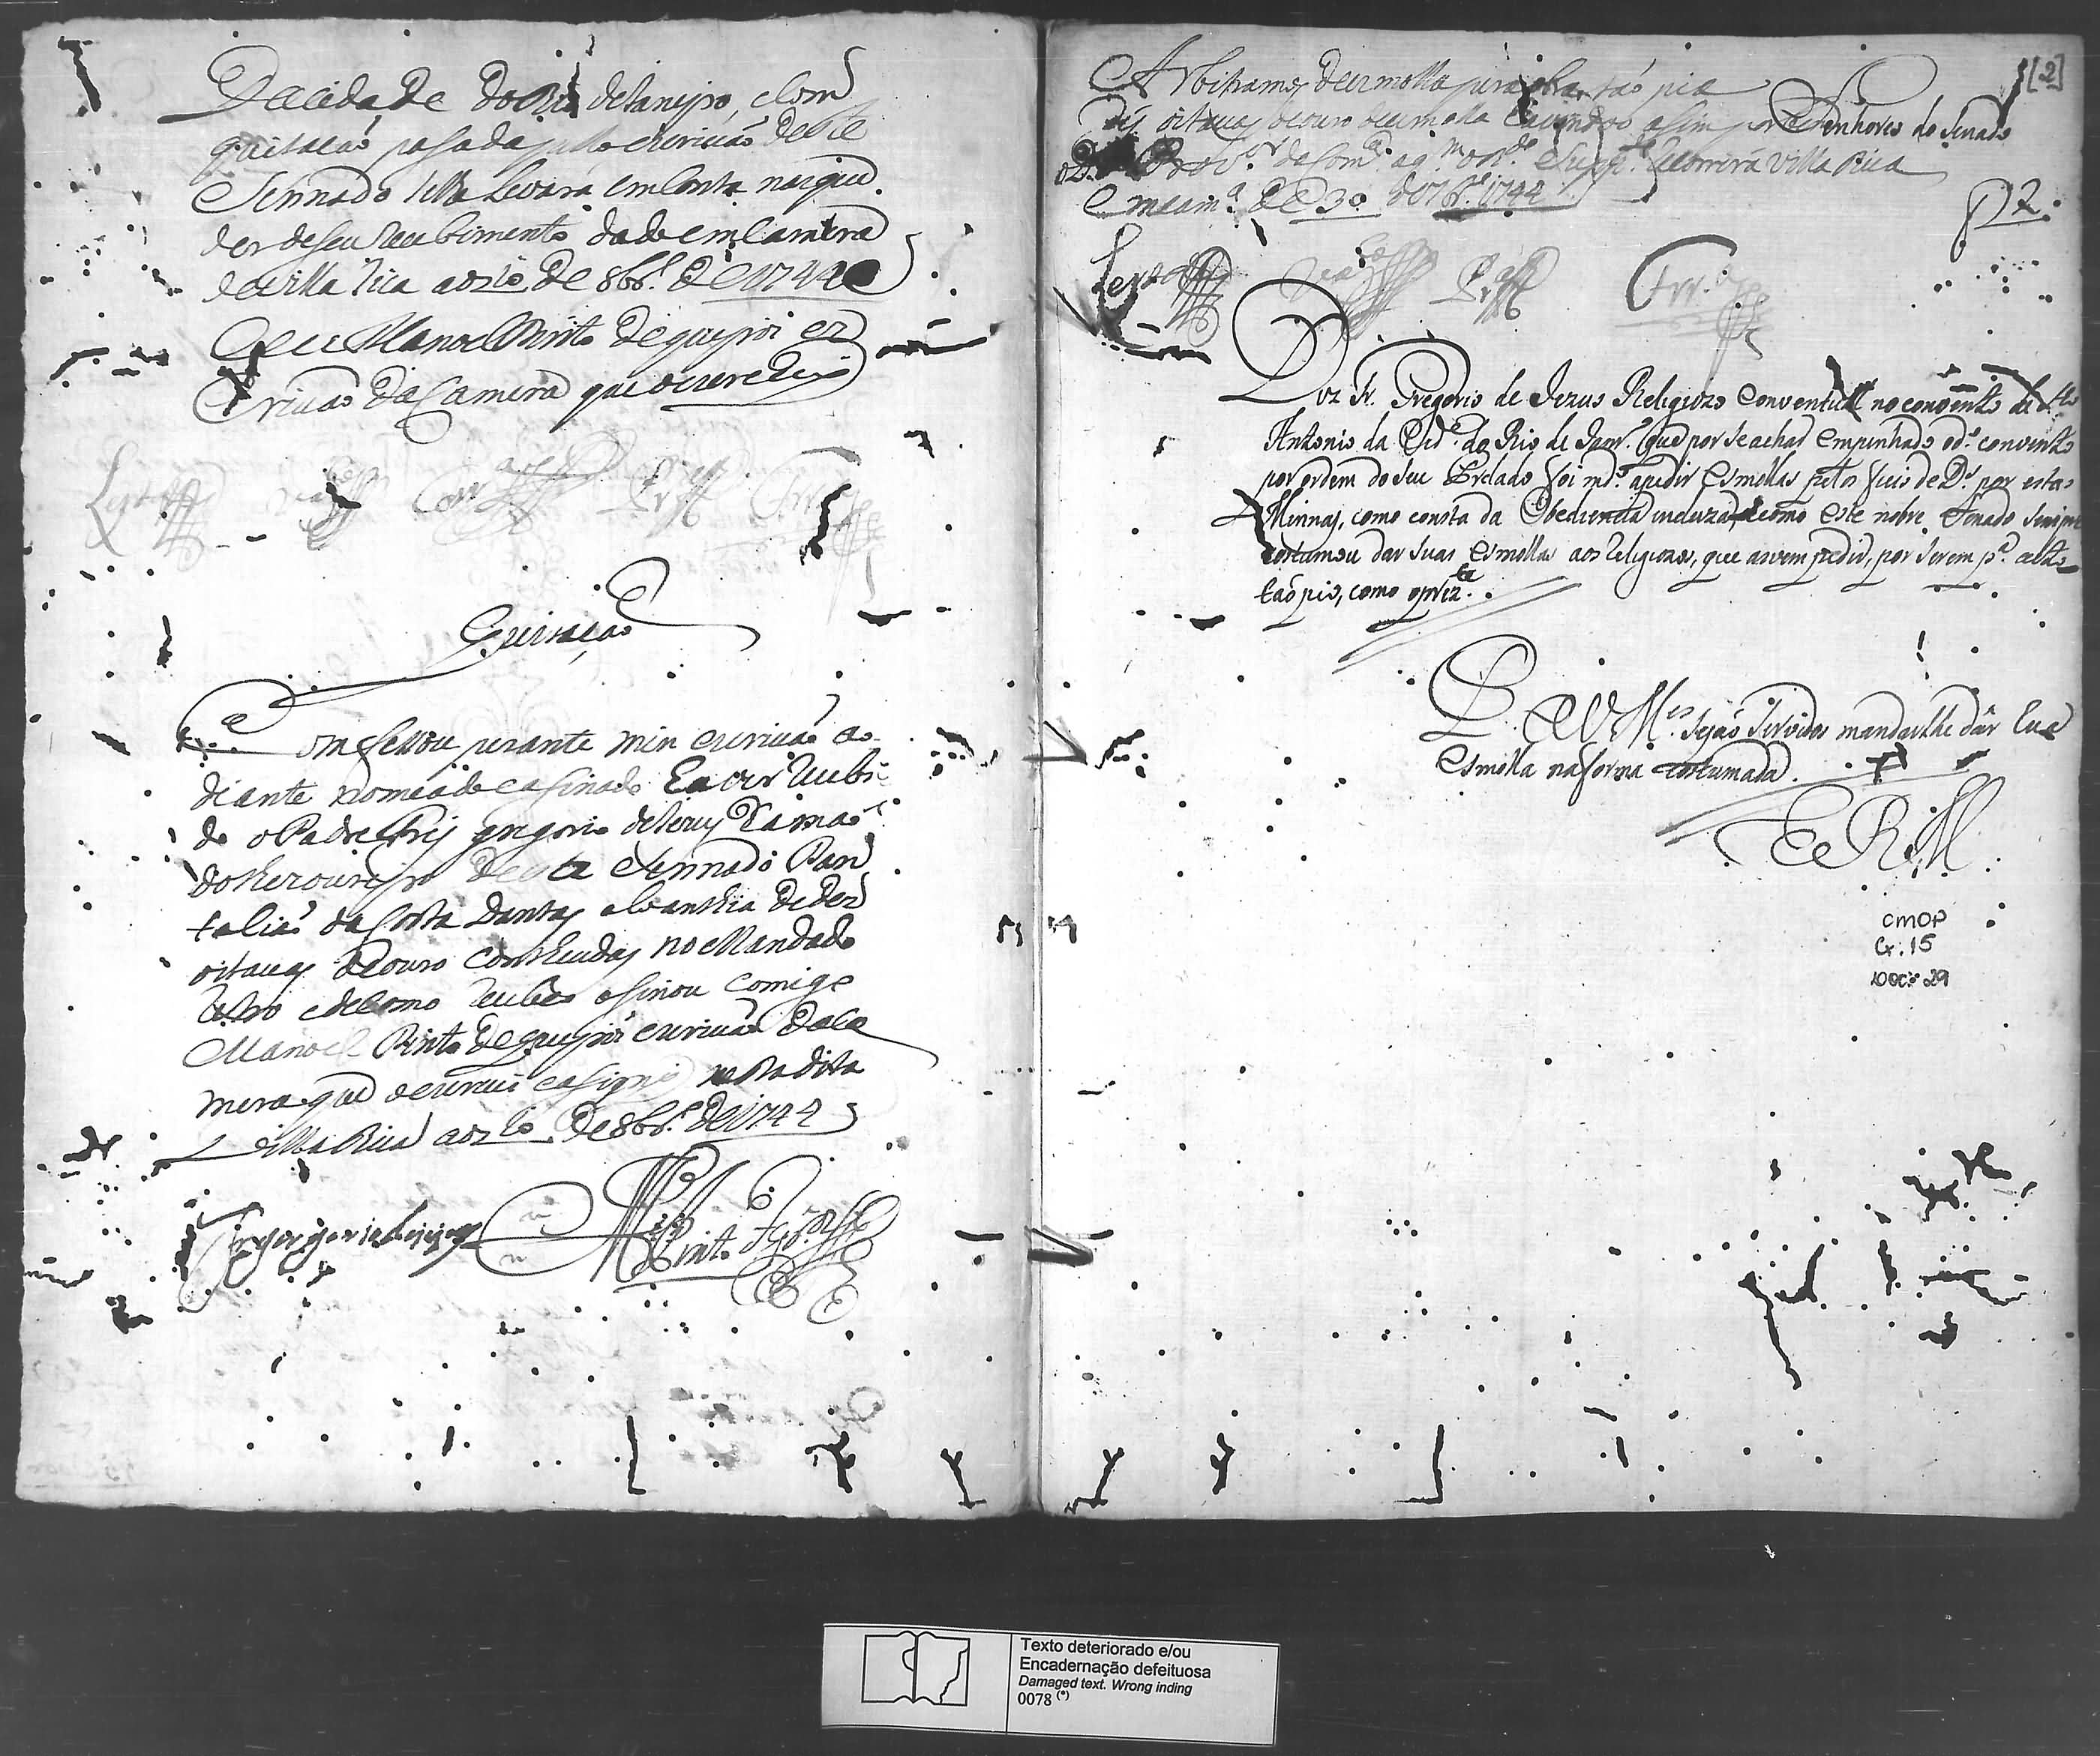 Dacidade do Rio deJaneyro, eCom
quitacaõ pasada pello escrivaõ deste
Sennado selhe Levará emConta nasque
der deseu Recebimento dada em Camera
deVilla Rica aos 10 de 8br.º de 1744
E eu Manoel Pinto deque foi es
Crivaõ da Camera que osoescrevi
Quitaçaõ
Confessou perante mim escrivaõ a
diante nomeado easinado haver Recebi
do oPadre Frey gregorio deJesus da maõ
do thezoureyro deste Sennado Pan
taliaõ da Costa Dantas aCoanthia dedez
oitavas deouro Contheudas no Mandado
Retro edeComo Recebeo asinou Comigo
Manoel Pinto de escrivaõ daCa
mera que oescrevi easigney nesta dita
Villa Rica aos 10 de 8br.º de 1744
Fr gregorio deJesus
M.el Pinto
[2]
Arbitramos deesmolla pera obra taõ pia
Dez oitavas deouro deesmolla havendoo asim por bem Senhores do Senado
oD.r Prov.or da Com.ca aq.m o R.do Supp.e Recorrerá Villa Rica
Em cam.ra de 30 de 7br.º 1744
P 2.
Diz Fr. Gregorio de Jezus Religiozo Conventual no convento de S.to
Antonio da Cid.e do Rio de Janr.º que por se achar empenhado od.º convento
por ordem do seu Prelado foi md.º apedir esmollas pelos fieis de D.s por estas
Minnas, como consta da Obediencia incluza e como este nobre Senado sempre
costumou dar suas esmollas aos Religiozos, que asvem pedir, por serem p.ª acto
taõ pio, como oprez.te
P. a V M.ces sejaõ servidos mandarlhe dár hua
esmolla na forma costumada.
E R M
CMOP
Cx: 15
DOC: 29
Texto deteriorado e/ou
Encadernação defeituosa
Damaged text. Wrong inding
0078 (*)